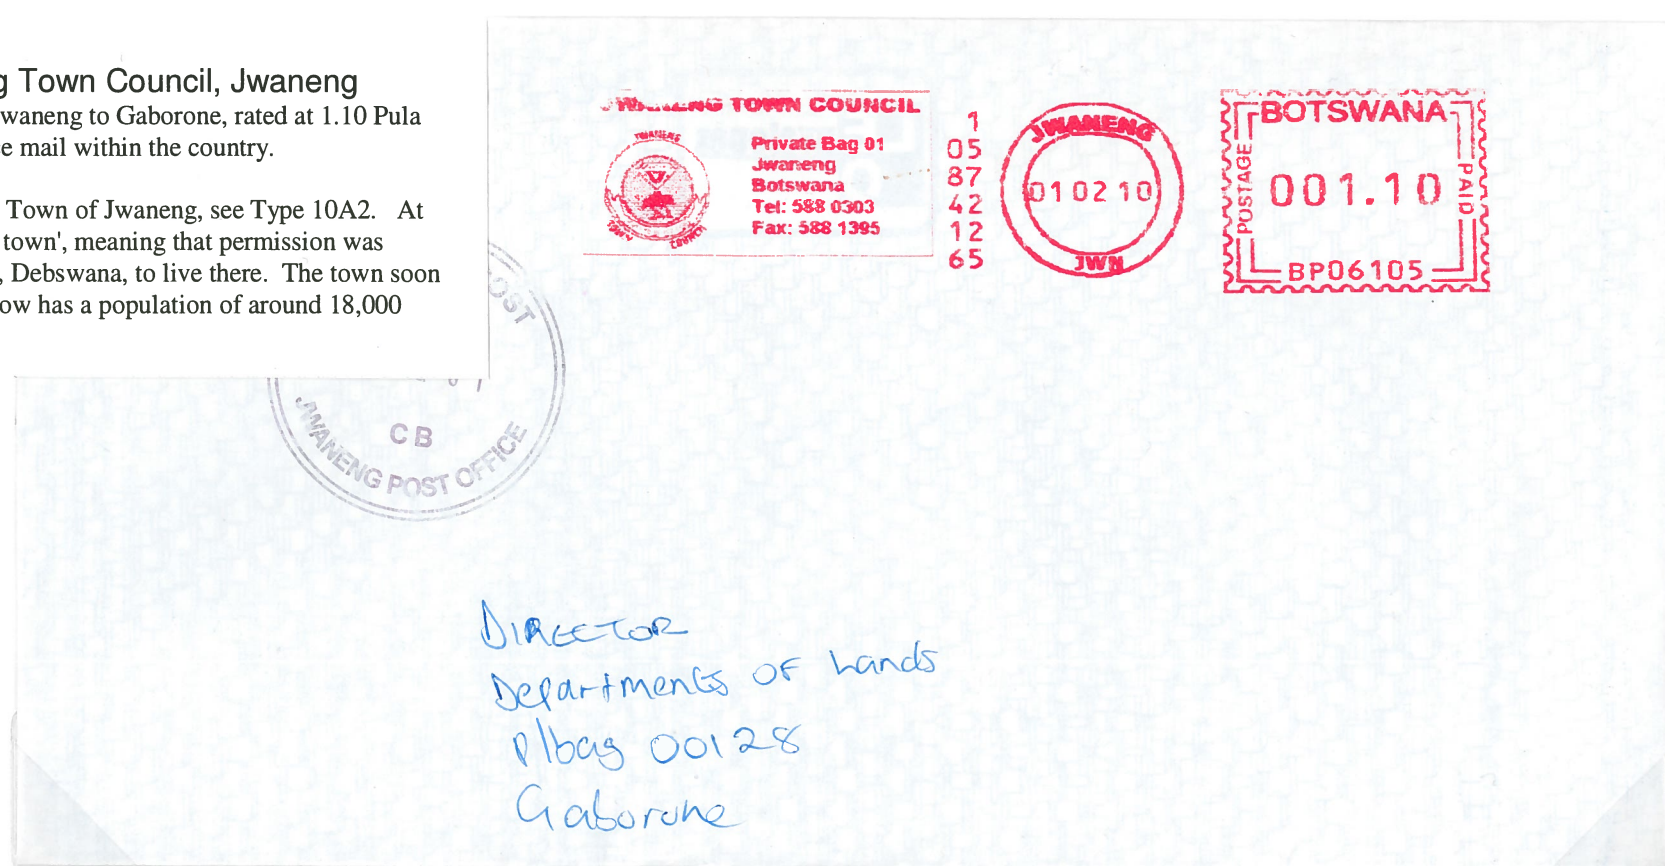 g Town Council, Jwaneng
waneng to Gaborone, rated at 1.10 Pula
e mail within the country.
Town of Jwaneng, see Type 10A2. At
town', meaning that permission was
, Debswana, to live there. The town soon
ow has a population of around 18,000
JWANENG TOWN COUNCIL
JWANENG
TOWN COUNCIL
Private Bag 01
Jwaneng
Botswana
Tel: 588 0303
Fax: 588 1395
1
05
87
42
12
65
JWANENG
01 02 10
JWN
BOTSWANA
POSTAGE
001.10
PAID
BP06105
OST
CB
JWANENG POST OFFICE
DIRECTOR
Departments OF Lands
P/bag 00128
Gaborone